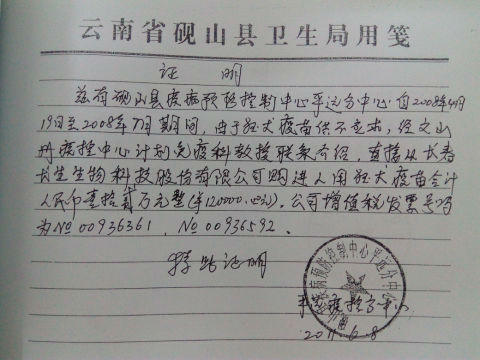 云南省砚山县卫生局用笺
证 明
兹有砚山县疾病预防控制中心平远分中心自2008年4月
19日至2008年7月期间，由于狂犬疫苗供不应求，经文山
州疾控中心计划免疫科教授联系介绍，直接从长春
长生生物科技股份有限公司购进人用狂犬疫苗合计
人民币壹拾贰万元整(￥120000.00元)。公司增值税发票号码
为No 00936361，No 00936592。
特此证明
疾病预防控制中心平远分中心
平远疾控分中心
2011.6.8